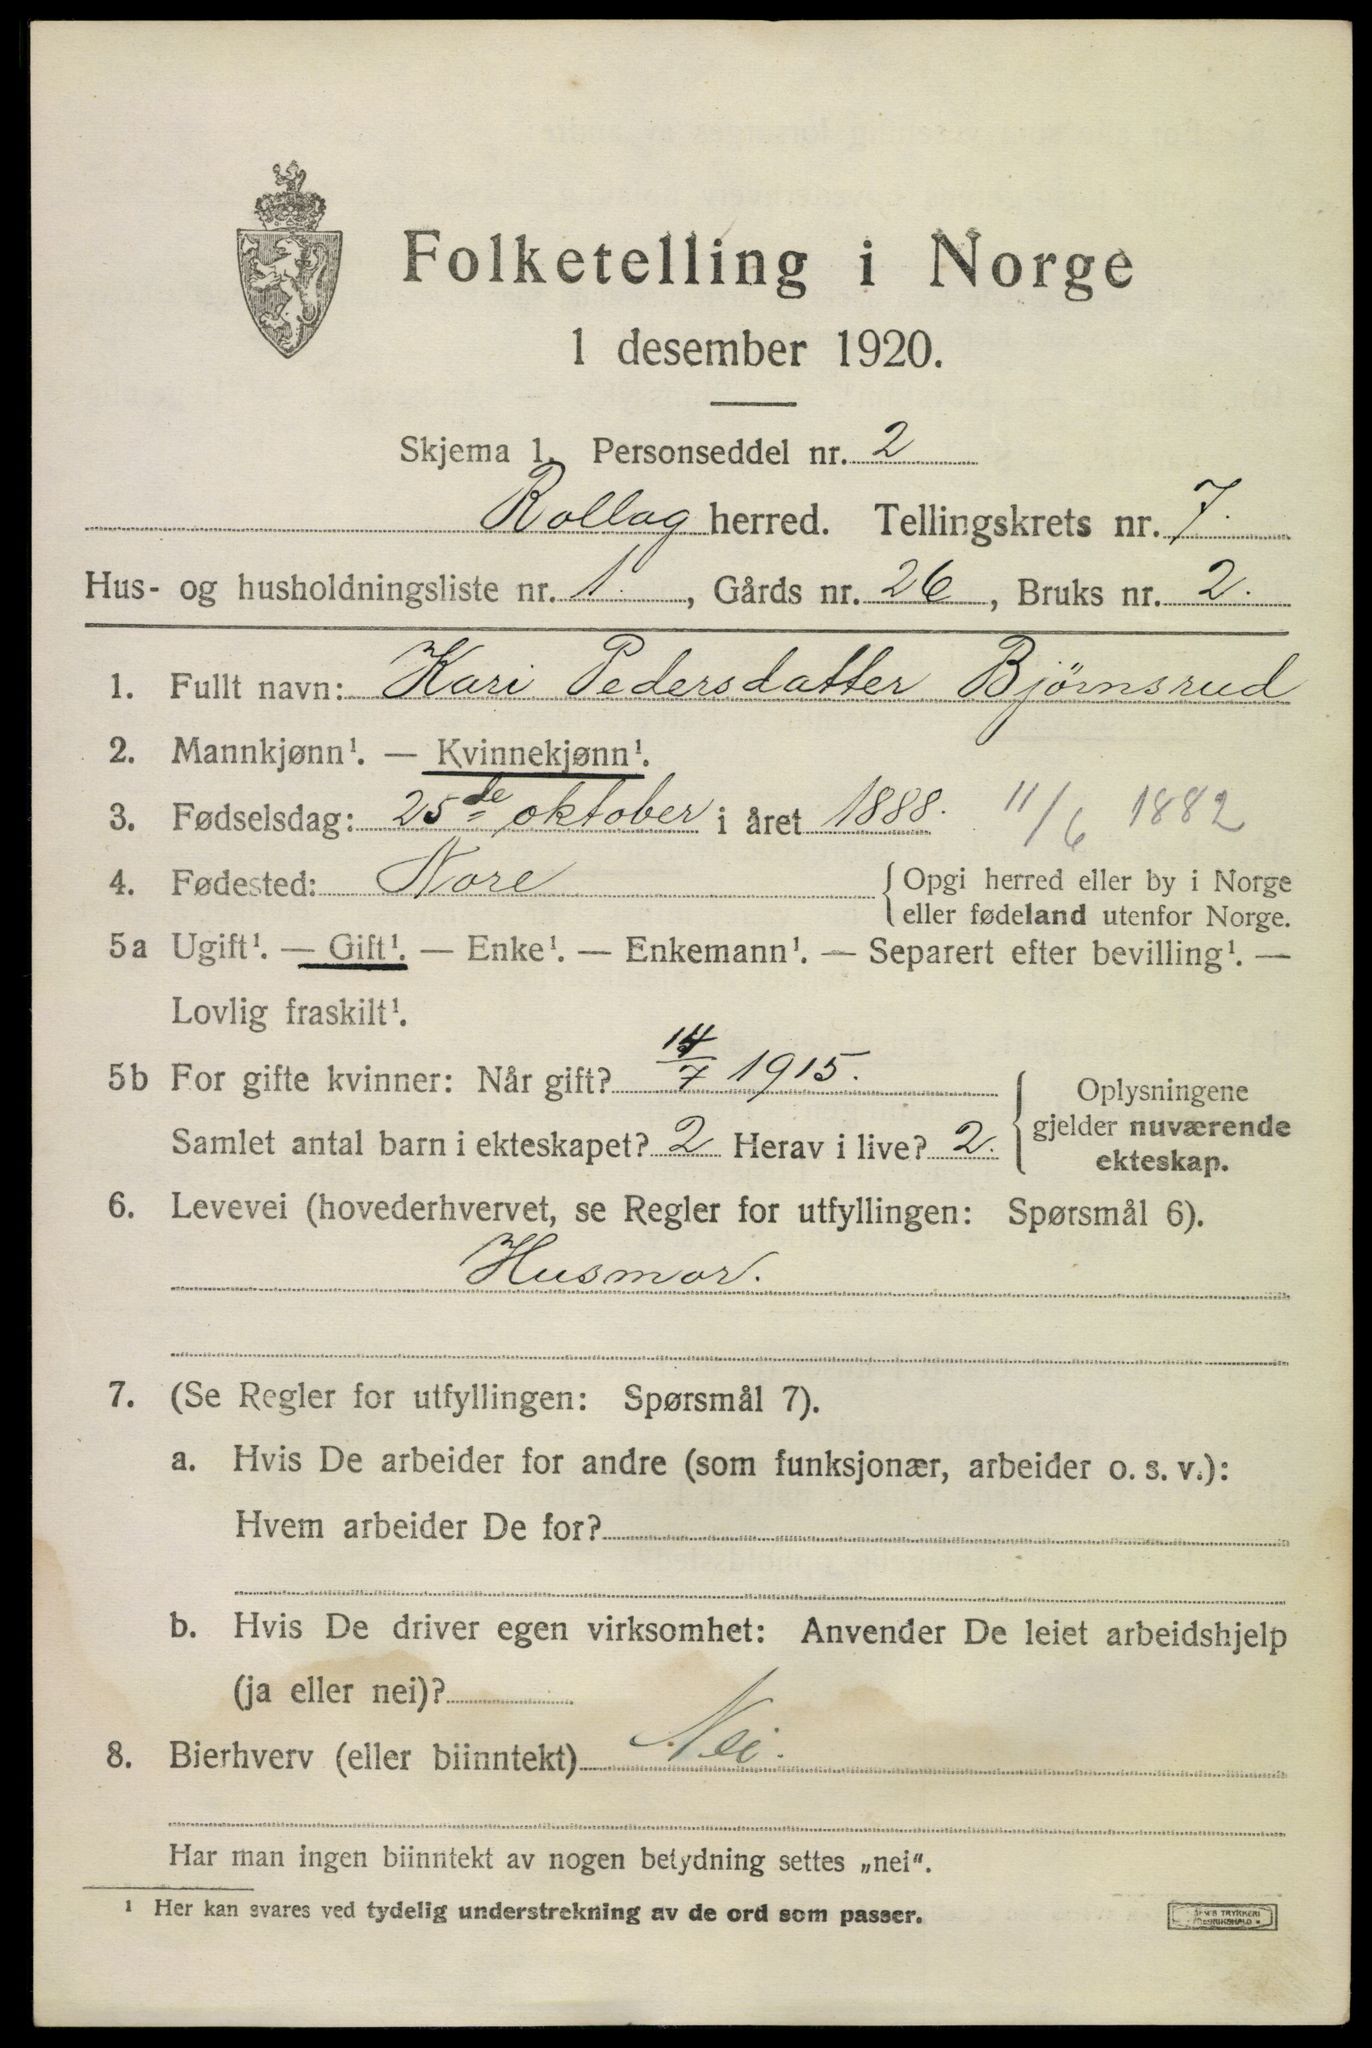 Folketelling i Norge
1 desember 1920.
Skjema 1. Personseddel nr. 2
Rollag herred. Tellingskrets nr. 7.
Hus- og husholdningsliste nr. 1. , Gårds nr. 26 , Bruks nr. 2.
1. Fullt navn: Kari Pedersdatter Bjørnsrud
2. Mannkjønn¹. — Kvinnekjønn¹.
3. Fødselsdag: 25de oktober i året 1888. 11/6 1882
4. Fødested: Nore { Opgi herred eller by i Norge
eller fødeland utenfor Norge.
5a Ugift¹. — Gift¹. — Enke¹. — Enkemann¹. — Separert efter bevilling¹. —
Lovlig fraskilt¹.
5b For gifte kvinner: Når gift? 14/7 1915. { Oplysningene
Samlet antal barn i ekteskapet? 2 Herav i live? 2. gjelder nuværende
ekteskap.
6. Levevei (hovederhvervet, se Regler for utfyllingen: Spørsmål 6).
Husmor.
7. (Se Regler for utfyllingen: Spørsmål 7).
a. Hvis De arbeider for andre (som funksjonær, arbeider o. s. v.):
Hvem arbeider De for?
b. Hvis De driver egen virksomhet: Anvender De leiet arbeidshjelp
(ja eller nei)?
8. Bierhverv (eller biinntekt) Nei.
Har man ingen biinntekt av nogen betydning settes „nei".
¹ Her kan svares ved tydelig understrekning av de ord som passer.
TRYKKERI